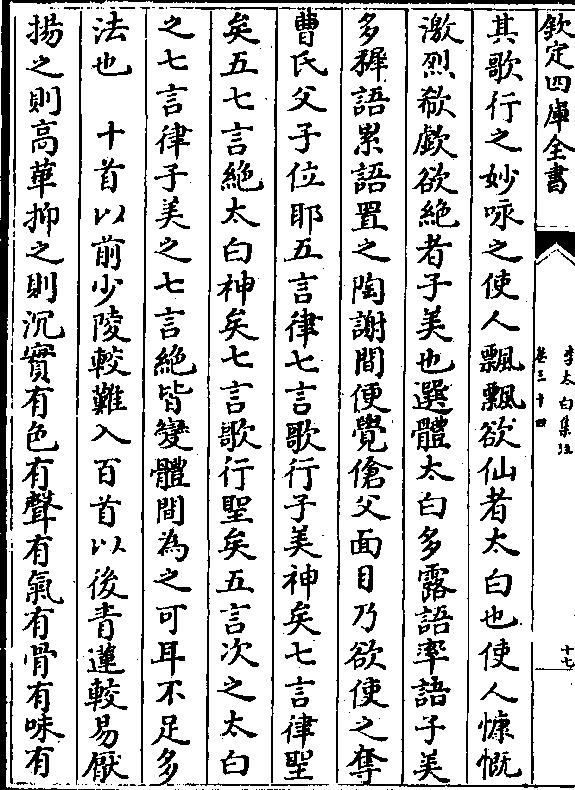 欽定四庫全書
李太白集注
卷三十四
十七
其歌行之妙咏之使人飄飄欲仙者太白也使人慷慨
激烈欷歔欲絶者子美也選體太白多露語率語子美
多穉語累語置之陶謝間便覺傖父面目乃欲使之奪
曹氏父子位耶五言律七言歌行子美神矣七言律聖
矣五七言絶太白神矣七言歌行聖矣五言次之太白
之七言律子美之七言絶皆變體間為之可耳不足多
法也　十首以前少陵較難入百首以後青蓮較易厭
揚之則高華抑之則沉實有色有聲有氣有骨有味有